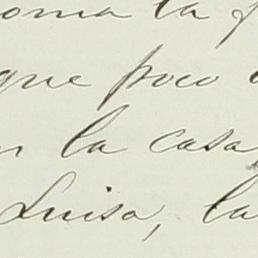 toma la
que poco
en la casa
Luisa, la